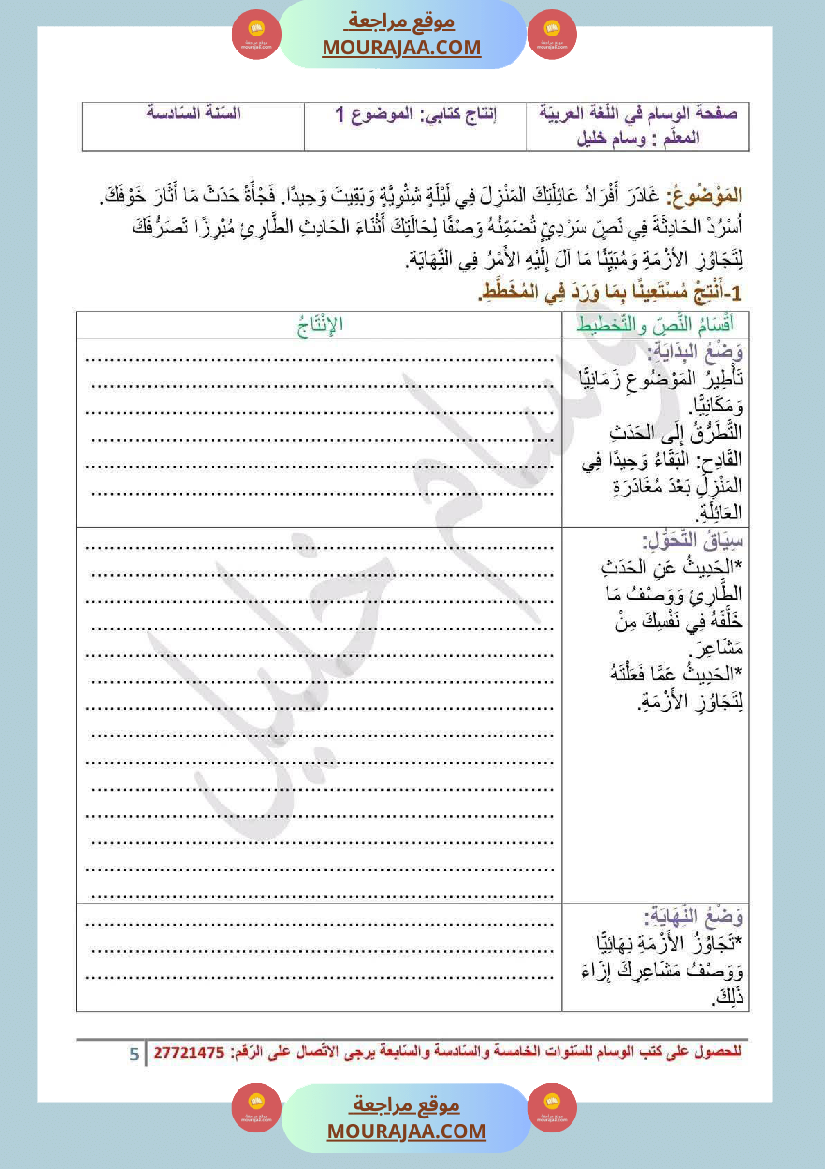 موقع مراجعة
MOURAJAA.COM
صفحة الوسام في اللّغة العربيّة
المعلّم : وسام خليل
إنتاج كتابي: الموضوع 1
السّنة السّادسة
المَوْضُوعُ: غَادَرَ أَفْرَادُ عَائِلَتِكَ المَنْزِلَ فِي لَيْلَةٍ شِتْوِيَّةٍ وَبَقِيتَ وَحِيدًا. فَجْأَةً حَدَثَ مَا أَثَارَ خَوْفَكَ.
اُسْرُدْ الحَادِثَةَ فِي نَصٍّ سَرْدِيٍّ تُضَمِّنُهُ وَصْفًا لِحَالَتِكَ أَثْنَاءَ الحَادِثِ الطَّارِئِ مُبْرِزًا تَصَرُّفَكَ
لِتَجَاوُزِ الأَزْمَةِ وَمُبَيِّنًا مَا آلَ إِلَيْهِ الأَمْرُ فِي النِّهَايَة.
1-أَنْتِجْ مُسْتَعِينًا بِمَا وَرَدَ فِي المُخَطَّطِ.
أَقْسَامُ النَّصِّ والتّخطيط
الإِنْتَاجُ
وَضْعُ البِدَايَةِ:
تَأْطِيرُ المَوْضُوعِ زَمَانِيًّا
وَمَكَانِيًّا.
التَّطَرُّقُ إِلَى الحَدَثِ
القَادِحِ: البَقَاءُ وَحِيدًا فِي
المَنْزِلِ بَعْدَ مُغَادَرَةِ
العَائِلَةِ.
سِيَاقُ التَّحَوُّلِ:
*الحَدِيثُ عَنِ الحَدَثِ
الطَّارِئِ وَوَصْفُ مَا
خَلَّفَهُ فِي نَفْسِكَ مِنْ
مَشَاعِرَ.
*الحَدِيثُ عَمَّا فَعَلْتَهُ
لِتَجَاوُزِ الأَزْمَةِ.
وَضْعُ النِّهَايَةِ:
*تَجَاوُزُ الأَزْمَةِ نِهَائِيًّا
وَوَصْفُ مَشَاعِرِكَ إِزَاءَ
ذَلِكَ.
وسام خليل
للحصول على كتب الوسام للسّنوات الخامسة والسّادسة والسّابعة يرجى الاتّصال على الرّقم: 27721475
5
موقع مراجعة
MOURAJAA.COM